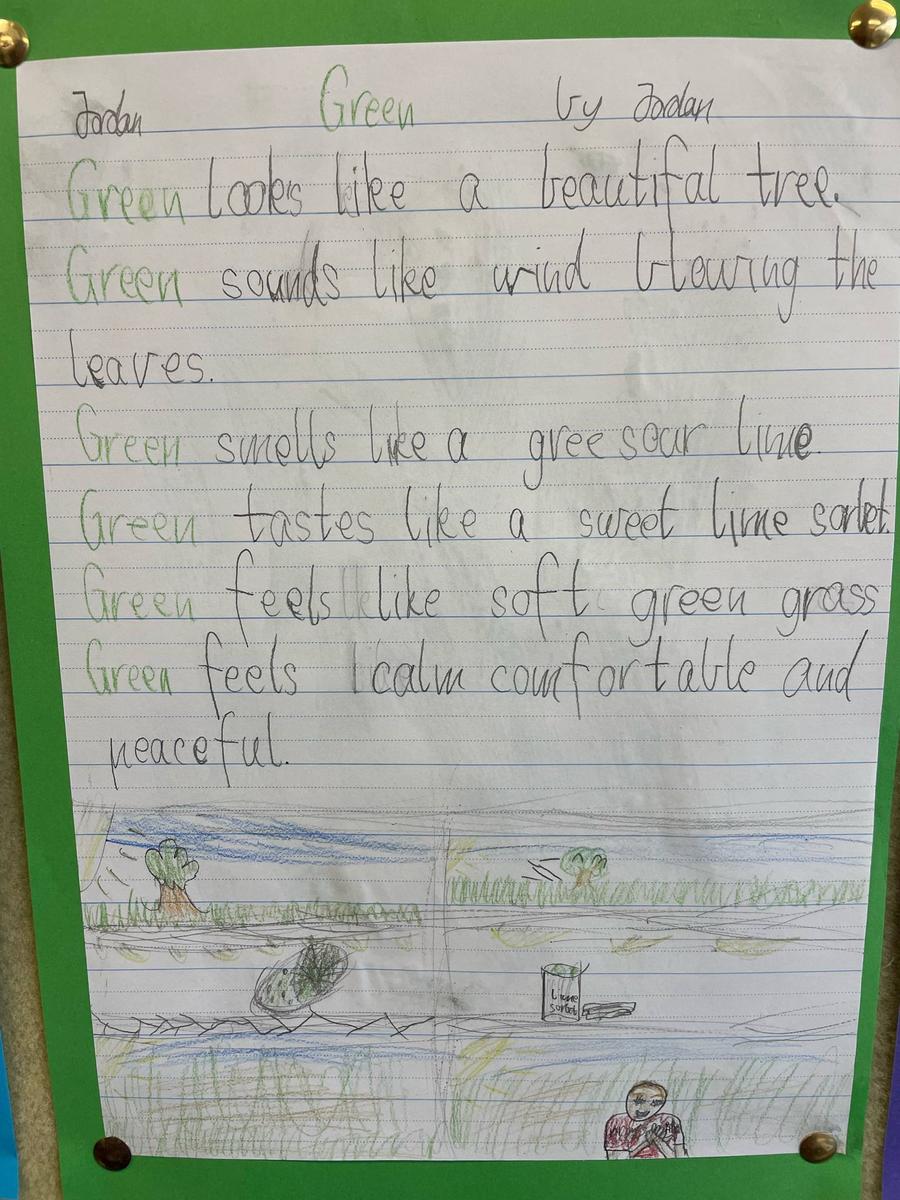 Jordan Green by Jordan
Green looks like a beautiful tree.
Green sounds like wind blowing the
leaves.
Green smells like a gree sour lime.
Green tastes like a sweet lime sorbet.
Green feels like soft green grass
Green feels calm comfortable and
peaceful.
lime
sorbet